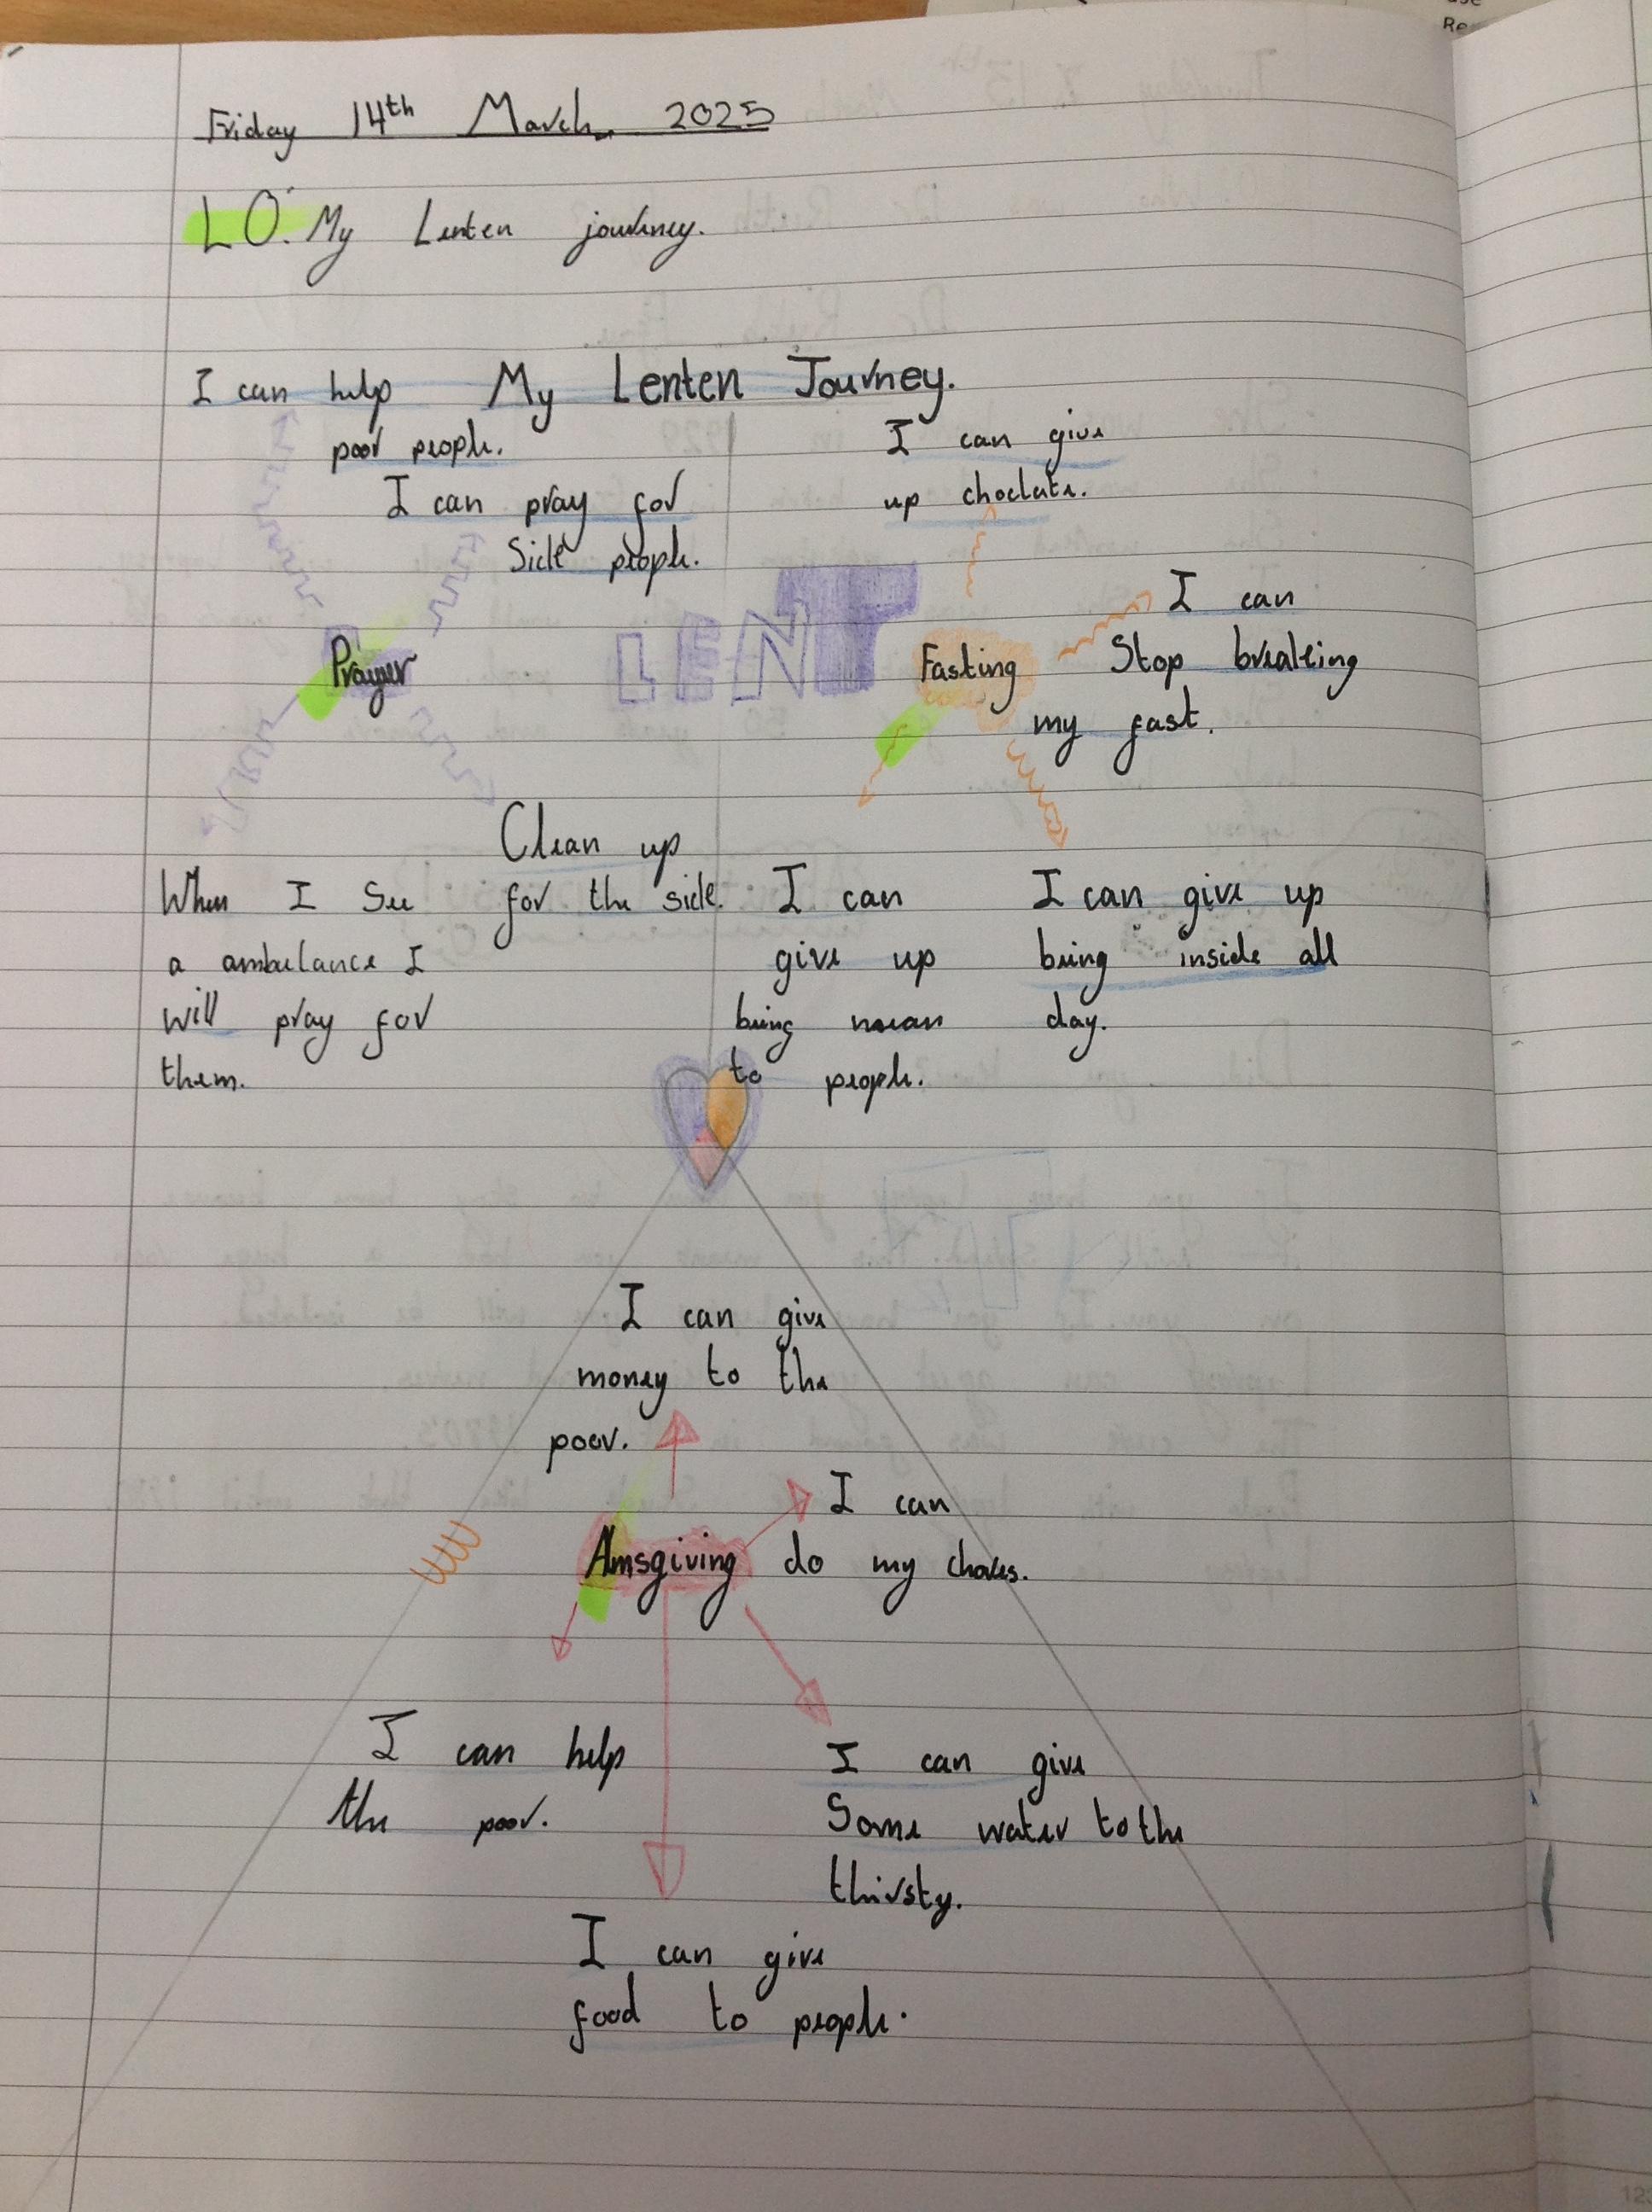 Friday 14th March 2025
LO: My Lenten journey.
My Lenten Journey.
I can help
poor people.
I can pray for
Sick people.
Prayer
When I See
a ambulance I
will pray for
them.
Clean up
for the sick.
LENT
I can give
up choclate.
Fasting
I can
Stop breaking
my fast.
I can
give up
being mean
to people.
I can give up
being inside all
day.
I can give
money to the
poor.
Amsgiving
I can
do my chores.
I can help
the poor.
I can give
Some water to the
thirsty.
I can give
food to people.